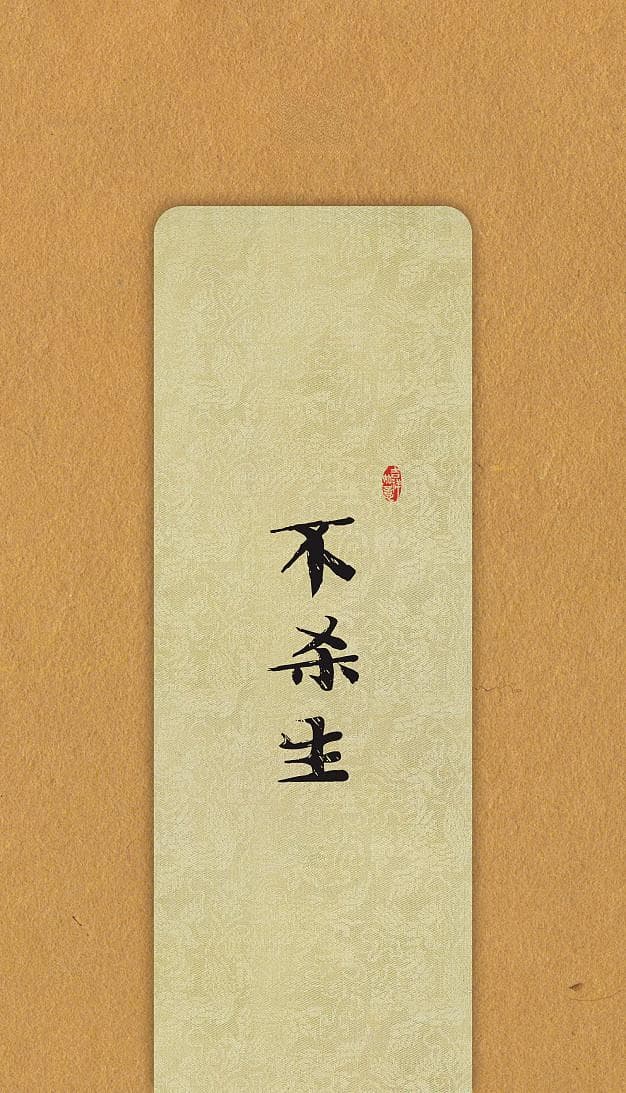 不杀生